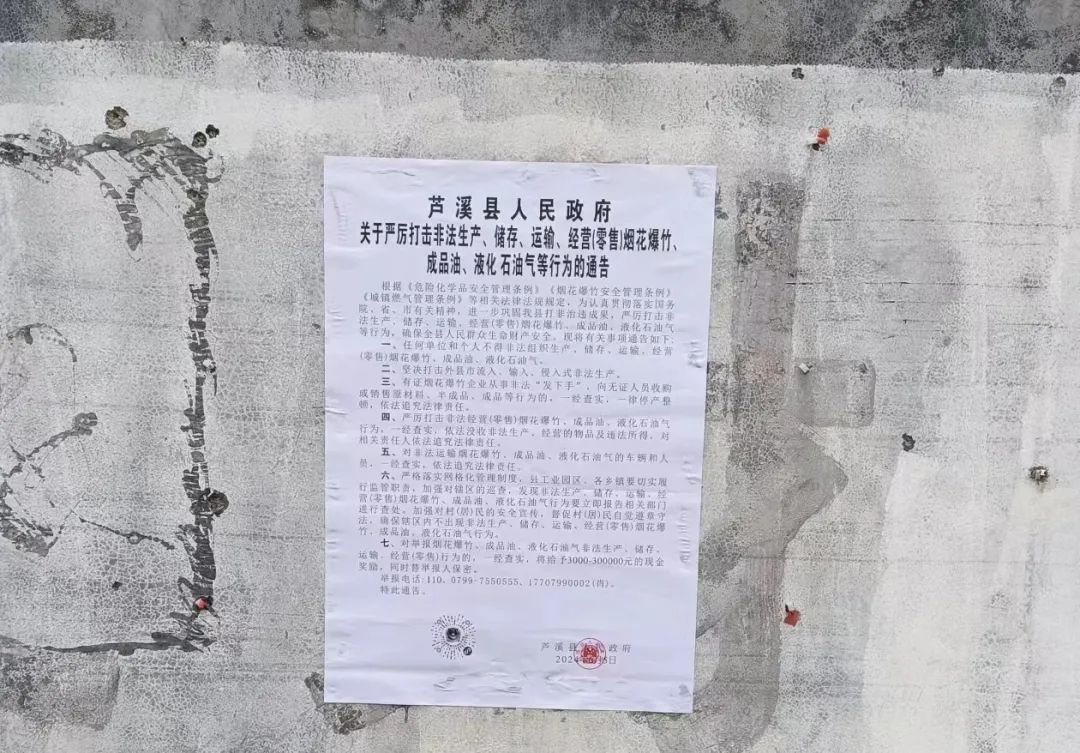 芦溪县人民政府
关于严厉打击非法生产、储存、运输、经营(零售)烟花爆竹、
成品油、液化石油气等行为的通告
根据《危险化学品安全管理条例》《烟花爆竹安全管理条例》
《城镇燃气管理条例》等相关法律法规规定，为认真贯彻落实国务
院、省、市有关精神，进一步巩固我县打非治违成果，严厉打击非
法生产、储存、运输、经营(零售)烟花爆竹、成品油、液化石油气
等行为，确保全县人民群众生命财产安全。现将有关事项通告如下：
一、任何单位和个人不得非法组织生产、储存、运输、经营
(零售)烟花爆竹、成品油、液化石油气。
二、坚决打击外县市流入、输入、侵入式非法生产。
三、有证烟花爆竹企业从事非法“发下手”，向无证人员收购
或销售原材料、半成品、成品等行为的，一经查实，一律停产整
顿，依法追究法律责任。
四、严厉打击非法经营(零售)烟花爆竹、成品油、液化石油气
行为，一经查实，依法没收非法生产、经营的物品及违法所得，对
相关责任人依法追究法律责任。
五、对非法运输烟花爆竹、成品油、液化石油气的车辆和人
员，一经查实，依法追究法律责任。
六、严格落实网格化管理制度，县工业园区、各乡镇要切实履
行监管职责，加强对辖区的巡查，发现非法生产、储存、运输、经
营(零售)烟花爆竹、成品油、液化石油气行为要立即报告相关部门
进行查处。加强对村(居)民的安全宣传，督促村(居)民自觉遵章守
法，确保辖区内不出现非法生产、储存、运输、经营(零售)烟花爆
竹、成品油、液化石油气行为。
七、对举报烟花爆竹、成品油、液化石油气非法生产、储存、
运输、经营(零售)行为的，一经查实，将给予3000-300000元的现金
奖励，同时替举报人保密。
举报电话:110、0799-7550555、17707990002(肖)。
特此通告。
芦溪县人民政府
2024年 日